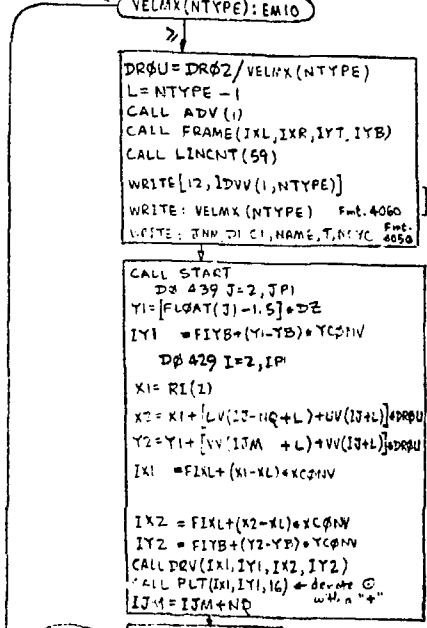 VELMX(NTYPE): EM10
≥
DRØU = DRØZ/VELMX(NTYPE)
L = NTYPE - 1
CALL ADV(1)
CALL FRAME(IXL,IXR,IYT,IYB)
CALL LINCNT(59)
WRITE[12, IDVV(1,NTYPE)]
WRITE: VELMX(NTYPE) Fmt. 4060
WRITE: JNM, NAME,T,NCYC Fmt. 4050
CALL START
DØ 439 J=2,JP1
Y1=[FLOAT(J)-1.5]*DZ
IY1 = FIYB+(Y1-YB)*YCØNV
DØ 429 I=2,IP1
X1= RI(I)
X2= X1+[UV(IJ-NQ+L)+UV(IJ+L)]*DRØU
Y2=Y1+[VV(IJM +L)+VV(IJ+L)]*DRØU
IX1 =FIXL+(X1-XL)*XCØNV
IX2 = FIXL+(X2-XL)*XCØNV
IY2 = FIYB+(Y2-YB)*YCØNV
CALL DRV(IX1,IY1,IX2,IY2)
CALL PLT(IX1,IY1,16) ← denote ⊙
with a "+"
IJM = IJM+NQ